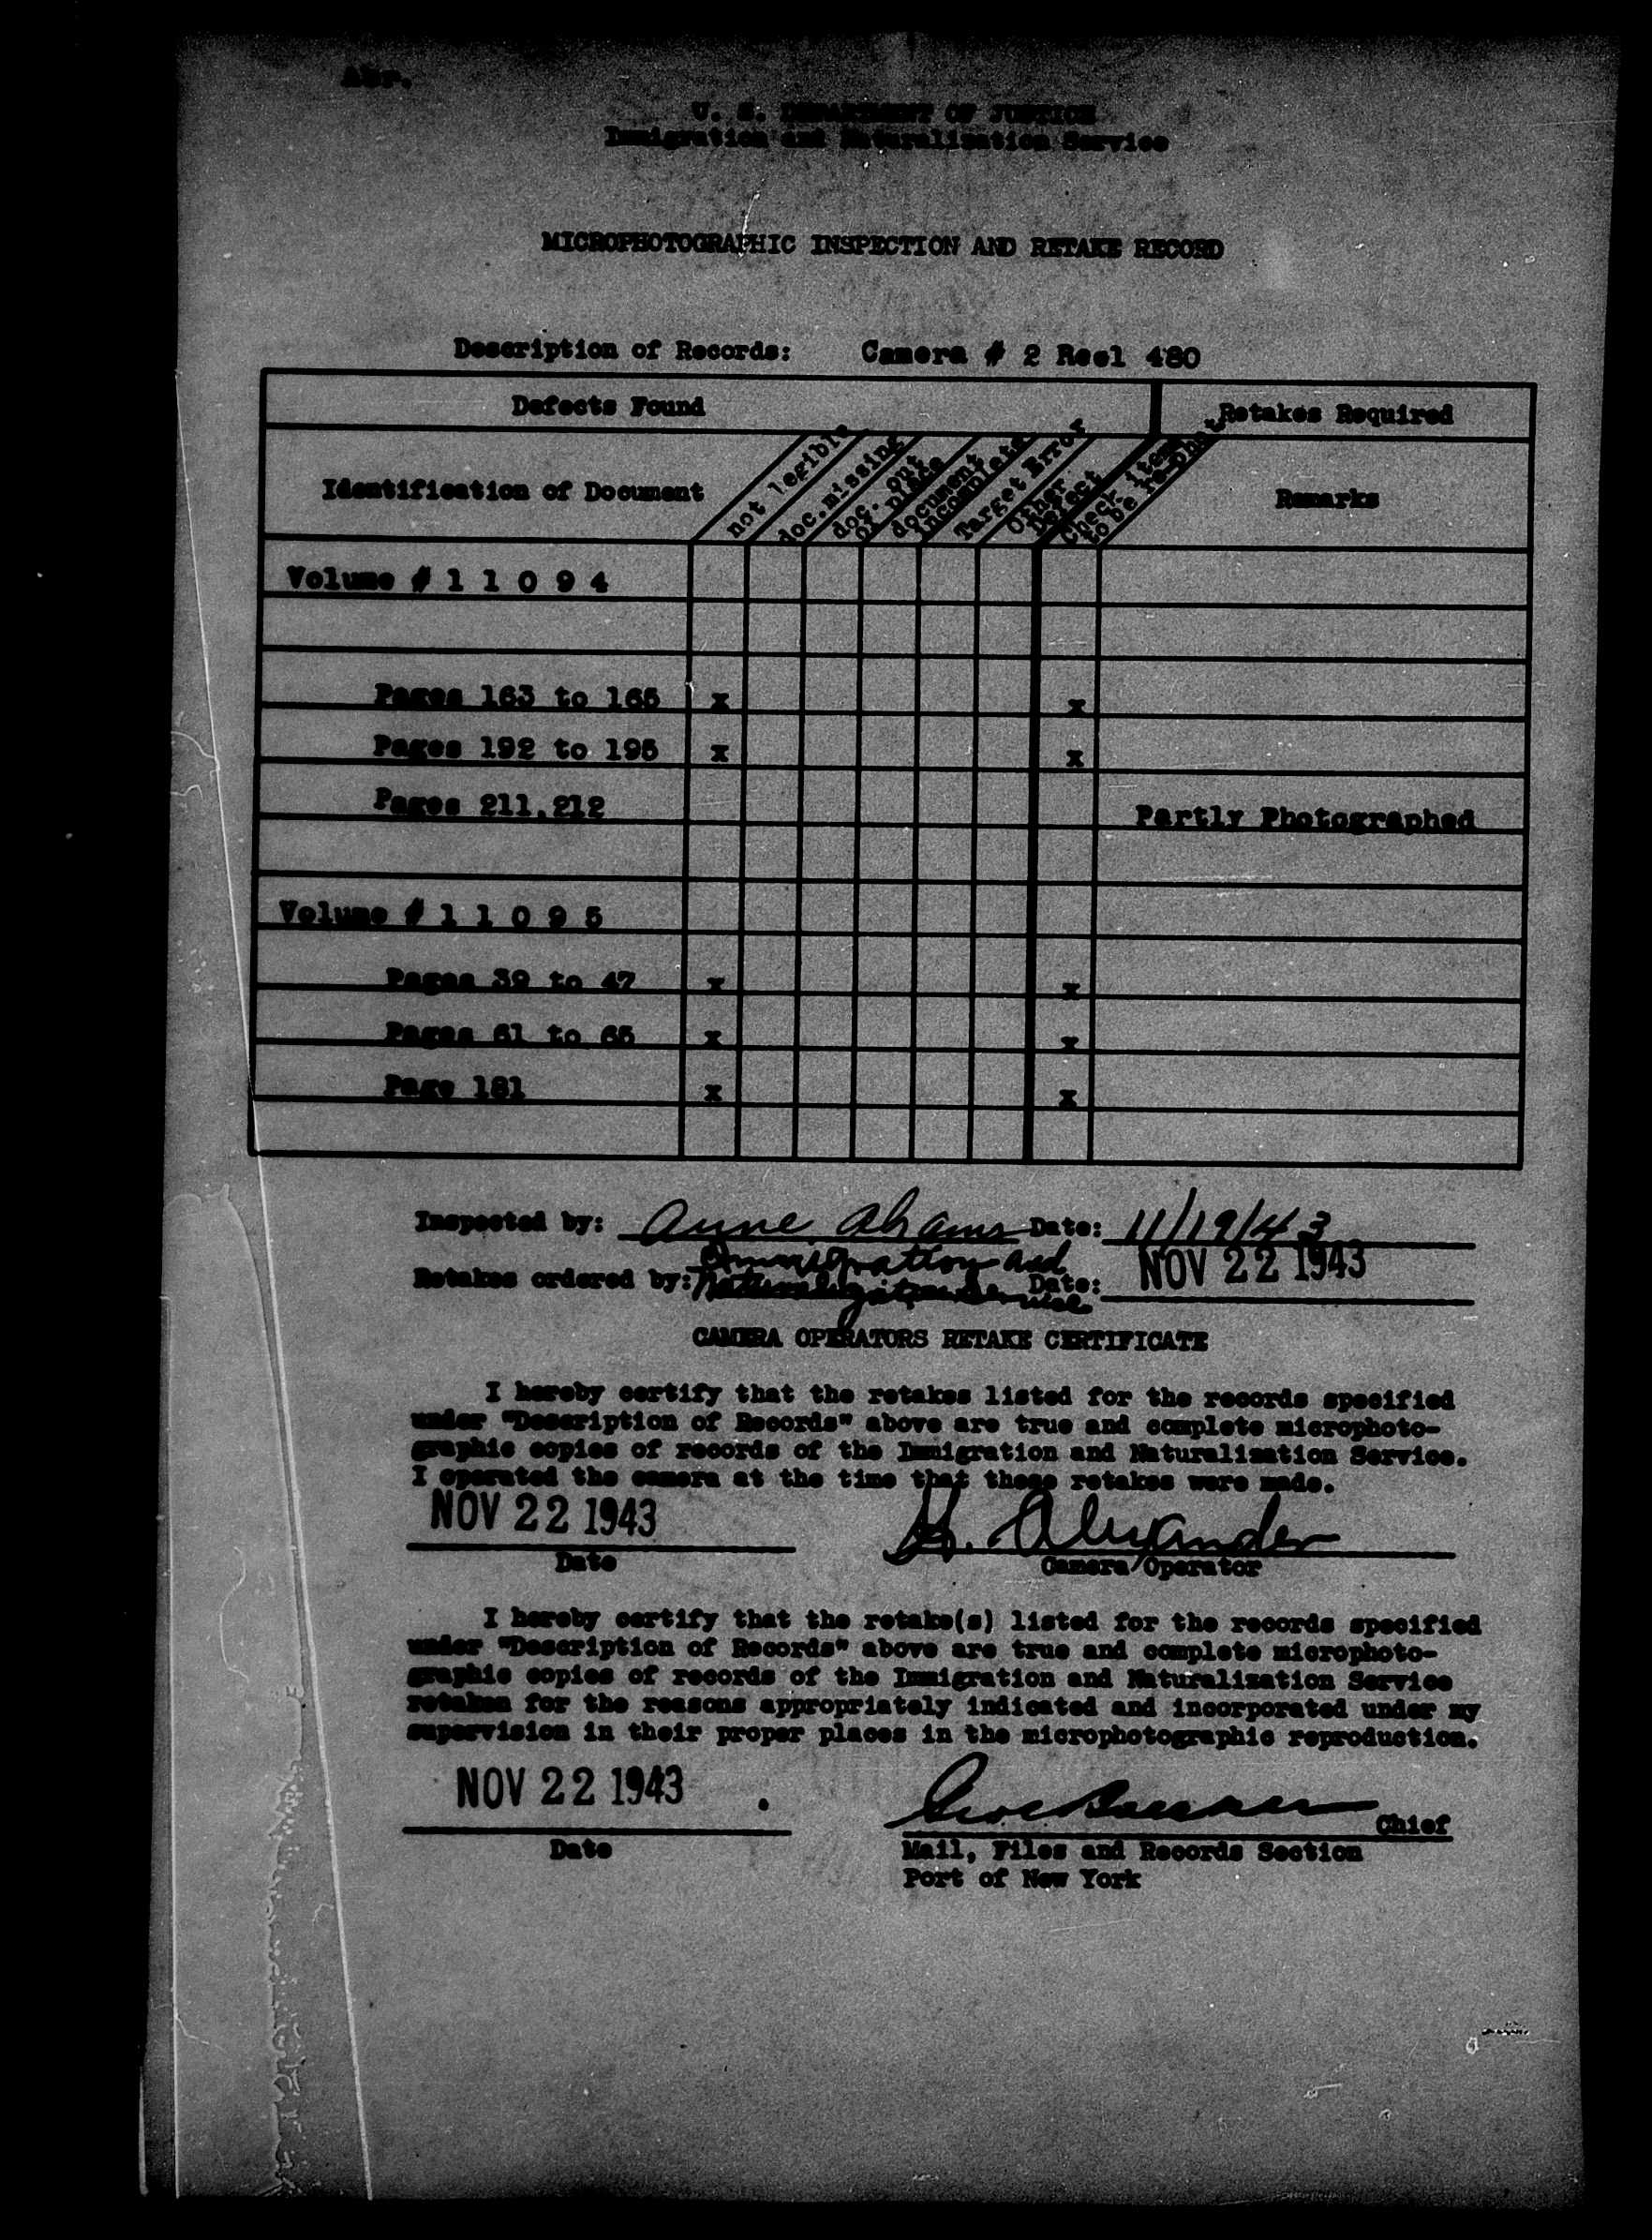 Abr.
U. S. DEPARTMENT OF JUSTICE
Immigration and Naturalization Service
MICROPHOTOGRAPHIC INSPECTION AND RETAKE RECORD
Description of Records: Camera # 2 Reel 480
Defects Found
Retakes Required
Identification of Document
not legible
doc. missing
doc. out of place
document incomplete
Target Error
Other Defect
Check item to be
Remarks
Volume # 1 1 0 9 4
Pages 163 to 165 x x
Pages 192 to 195 x x
Pages 211,212 Partly Photographed
Volume # 1 1 0 9 5
Pages 39 to 47 x x
Pages 61 to 65 x x
Page 181 x x
Inspected by: Anne Abrams Date: 11/19/43
Retakes ordered by: Immigration and Naturalization Service Date: NOV 22 1943
CAMERA OPERATORS RETAKE CERTIFICATE
I hereby certify that the retakes listed for the records specified
under "Description of Records" above are true and complete microphoto-
graphic copies of records of the Immigration and Naturalization Service.
I operated the camera at the time that these retakes were made.
NOV 22 1943 H. Alexander
Date Camera Operator
I hereby certify that the retake(s) listed for the records specified
under "Description of Records" above are true and complete microphoto-
graphic copies of records of the Immigration and Naturalization Service
retaken for the reasons appropriately indicated and incorporated under my
supervision in their proper places in the microphotographic reproduction.
NOV 22 1943 Chief
Date Mail, Files and Records Section
Port of New York